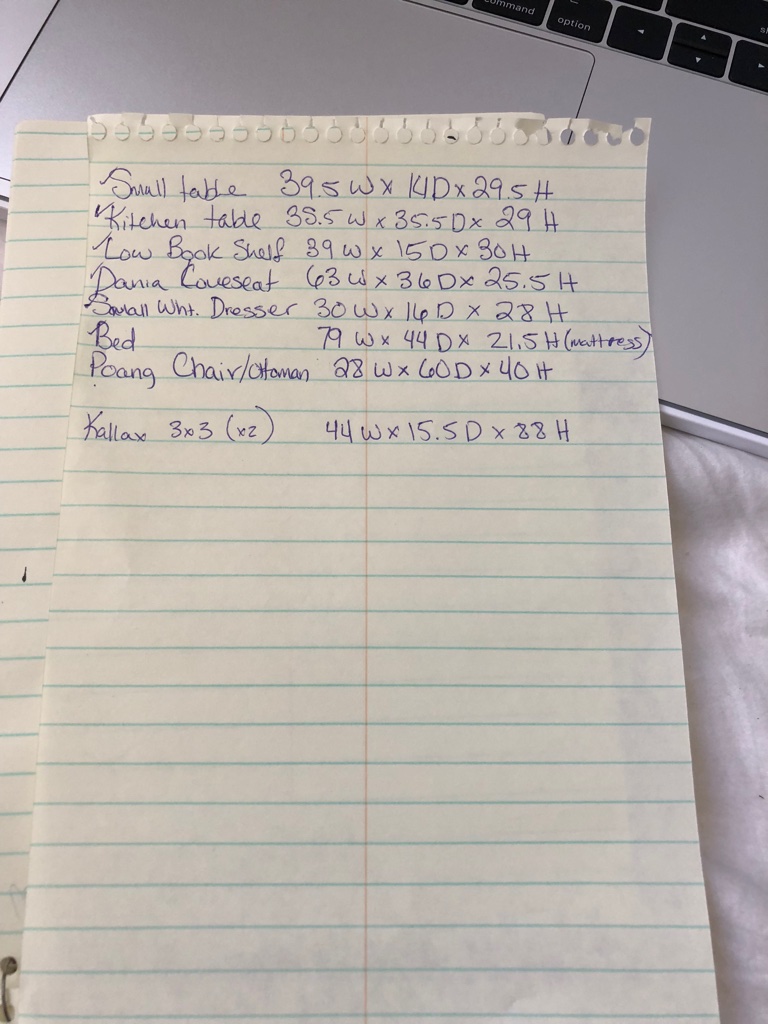 command
option
Small table 39.5 W x 14D x 29.5 H
Kitchen table 35.5 W x 35.5D x 29 H
Low Book Shelf 39 W x 15 D x 30 H
Dania Loveseat 63 W x 36 D x 25.5 H
Small Wht. Dresser 30 W x 16 D x 28 H
Bed 79 W x 44 D x 21.5 H (mattress)
Poang Chair/Ottoman 28 W x 60D x 40 H
Kallax 3x3 (x2) 44 W x 15.5 D x 88 H